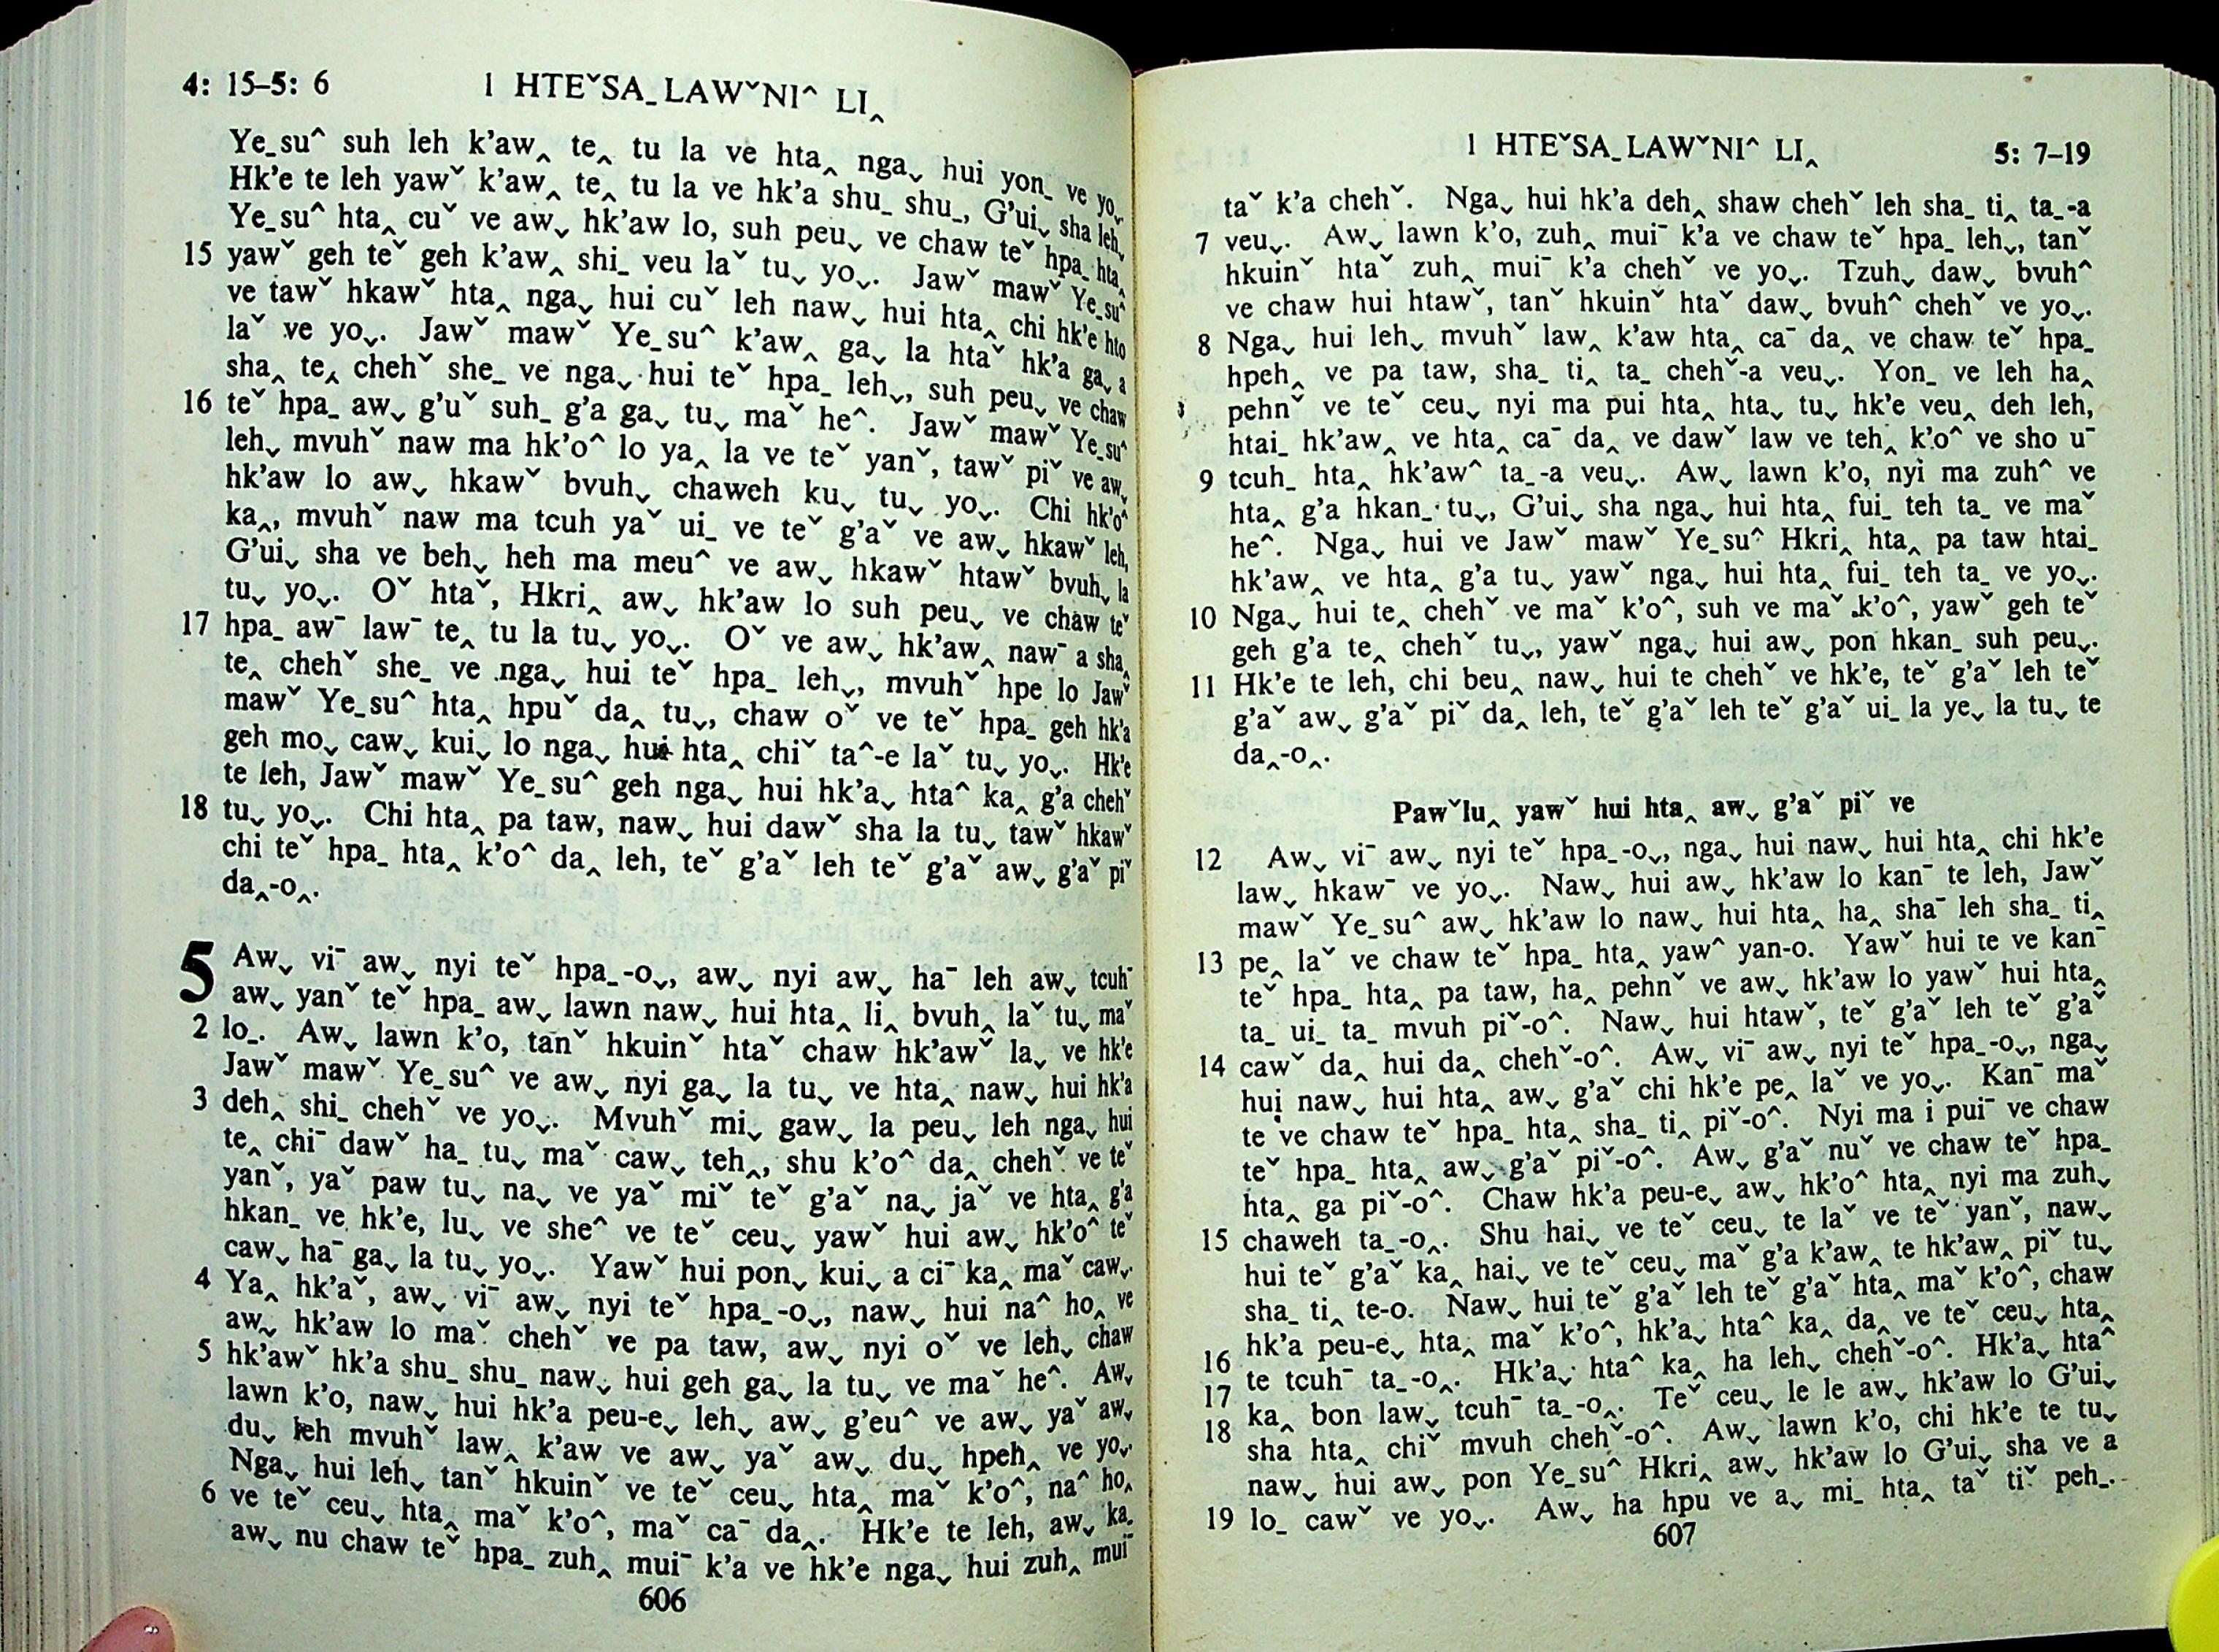 4: 15–5: 6 1 HTEˇSAˍLAWˇNIˆ LI‸
Yeˍsuˆ suh leh k'aw‸ te‸ tu la ve hta‸ ngaˬ hui yonˍ ve yoˬ.
Hk'e te leh yawˇ k'aw‸ te‸ tu la ve hk'a shuˍ shuˍ, G'uiˬ sha lehˬ
Yeˍsuˆ hta‸ cuˇ ve awˬ hk'aw lo, suh peuˬ ve chaw teˇ hpaˍ hta‸
15 yawˇ geh teˇ geh k'aw‸ shiˍ veu laˇ tuˬ yoˬ. Jawˇ mawˇ Yeˍsuˆ
ve tawˇ hkawˇ hta‸ ngaˬ hui cuˇ leh nawˬ hui hta‸ chi hk'e hto
laˇ ve yoˬ. Jawˇ mawˇ Yeˍsuˆ k'aw‸ gaˬ la htaˇ hk'a gaˬ a
sha‸ te‸ chehˇ sheˍ ve ngaˬ hui teˇ hpaˍ lehˬ, suh peuˬ ve chaw
16 teˇ hpaˍ awˬ g'uˇ suhˍ g'a gaˬ tuˬ maˇ heˆ. Jawˇ mawˇ Yeˍsuˆ
lehˬ mvuhˇ naw ma hk'oˆ lo ya‸ la ve teˇ yanˇ, tawˇ piˇ ve awˬ
hk'aw lo awˬ hkawˇ bvuhˬ chaweh kuˬ tuˬ yoˬ. Chi hk'oˆ
ka‸, mvuhˇ naw ma tcuh yaˇ uiˍ ve teˇ g'aˇ ve awˬ hkawˇ leh,
G'uiˬ sha ve behˬ heh ma meuˆ ve awˬ hkawˇ htawˇ bvuhˬ la
tuˬ yoˬ. Oˇ htaˇ, Hkri‸ awˬ hk'aw lo suh peuˬ ve chaw teˇ
17 hpaˍ awˉ lawˉ te‸ tu la tuˬ yoˬ. Oˇ ve awˬ hk'aw‸ nawˉ a sha‸
te‸ chehˇ sheˍ ve ngaˬ hui teˇ hpaˍ lehˬ, mvuhˇ hpe lo Jawˇ
mawˇ Yeˍsuˆ hta‸ hpuˇ da‸ tuˬ, chaw oˇ ve teˇ hpaˍ geh hk'a
geh moˬ cawˬ kuiˬ lo ngaˬ hui hta‸ chiˇ taˆ-e laˇ tuˬ yoˬ. Hk'e
te leh, Jawˇ mawˇ Yeˍsuˆ geh ngaˬ hui hk'aˬ htaˆ ka‸ g'a chehˇ
18 tuˬ yoˬ. Chi hta‸ pa taw, nawˬ hui dawˇ sha la tuˬ tawˇ hkawˇ
chi teˇ hpaˍ hta‸ k'oˆ da‸ leh, teˇ g'aˇ leh teˇ g'aˇ awˬ g'aˇ piˇ
da‸-o‸.
5 Awˬ viˉ awˬ nyi teˇ hpaˍ-oˬ, awˬ nyi awˬ haˉ leh awˬ tcuhˉ
awˬ yanˇ teˇ hpaˍ awˬ lawn nawˬ hui hta‸ li‸ bvuh‸ laˇ tuˬ maˇ
2 loˍ. Awˬ lawn k'o, tanˇ hkuinˇ htaˇ chaw hk'awˇ laˬ ve hk'e
Jawˇ mawˇ Yeˍsuˆ ve awˬ nyi gaˬ la tuˬ ve hta‸ nawˬ hui hk'a
3 deh‸ shiˍ chehˇ ve yoˬ. Mvuhˇ miˬ gawˬ la peuˬ leh ngaˬ hui
te‸ chiˉ dawˇ haˍ tuˬ maˇ cawˬ teh‸, shu k'oˆ da‸ chehˇ ve teˇ
yanˇ, yaˇ paw tuˬ naˬ ve yaˇ miˇ teˇ g'aˇ naˬ jaˇ ve hta‸ g'a
hkanˍ ve hk'e, luˬ ve sheˆ ve teˇ ceuˬ yawˇ hui awˬ hk'oˆ teˇ
cawˬ haˉ gaˬ la tuˬ yoˬ. Yawˇ hui ponˬ kuiˬ a ciˉ ka‸ maˇ cawˬ.
4 Ya‸ hk'aˇ, awˬ viˉ awˬ nyi teˇ hpaˍ-oˬ, nawˬ hui naˆ ho‸ ve
awˬ hk'aw lo maˇ chehˇ ve pa taw, awˬ nyi oˇ ve lehˬ chaw
5 hk'awˇ hk'a shuˍ shuˍ nawˬ hui geh gaˬ la tuˬ ve maˇ heˆ. Awˬ
lawn k'o, nawˬ hui hk'a peu-eˬ lehˬ awˬ g'euˆ ve awˬ yaˇ awˬ
duˬ leh mvuhˇ law‸ k'aw ve awˬ yaˇ awˬ duˬ hpeh‸ ve yoˬ.
Ngaˬ hui lehˬ tanˇ hkuinˇ ve teˇ ceuˬ hta‸ maˇ k'oˆ, naˆ ho‸
6 ve teˇ ceuˬ hta‸ maˇ k'oˆ, maˇ caˉ da‸. Hk'e te leh, awˬ ka‸
awˬ nu chaw teˇ hpaˍ zuh‸ muiˉ k'a ve hk'e ngaˬ hui zuh‸ muiˉ
606
1 HTEˇSAˍLAWˇNIˆ LI‸ 5: 7–19
taˇ k'a chehˇ. Ngaˬ hui hk'a deh‸ shaw chehˇ leh shaˍ ti‸ taˍ-a
7 veuˬ. Awˬ lawn k'o, zuh‸ muiˉ k'a ve chaw teˇ hpaˍ lehˬ, tanˇ
hkuinˇ htaˇ zuh‸ muiˉ k'a chehˇ ve yoˬ. Tzuhˬ dawˬ bvuhˆ
ve chaw hui htawˇ, tanˇ hkuinˇ htaˇ dawˬ bvuhˆ chehˇ ve yoˬ.
8 Ngaˬ hui lehˬ mvuhˇ law‸ k'aw hta‸ caˉ da‸ ve chaw teˇ hpaˍ
hpeh‸ ve pa taw, shaˍ ti‸ taˍ chehˇ-a veuˬ. Yonˍ ve leh ha‸
pehnˇ ve teˇ ceuˬ nyi ma pui hta‸ htaˬ tuˬ hk'e veu‸ deh leh,
htaiˍ hk'aw‸ ve hta‸ caˉ da‸ ve dawˇ law ve teh‸ k'oˆ ve sho uˉ
9 tcuhˍ hta‸ hk'awˆ taˍ-a veuˬ. Awˬ lawn k'o, nyi ma zuhˆ ve
hta‸ g'a hkanˍ tuˬ, G'uiˬ sha ngaˬ hui hta‸ fuiˍ teh taˍ ve maˇ
heˆ. Ngaˬ hui ve Jawˇ mawˇ Yeˍsuˆ Hkri‸ hta‸ pa taw htaiˍ
hk'aw‸ ve hta‸ g'a tuˬ yawˇ ngaˬ hui hta‸ fuiˍ teh taˍ ve yoˬ.
10 Ngaˬ hui te‸ chehˇ ve maˇ k'oˆ, suh ve maˇ k'oˆ, yawˇ geh teˇ
geh g'a te‸ chehˇ tuˬ, yawˇ ngaˬ hui awˬ pon hkanˍ suh peuˬ.
11 Hk'e te leh, chi beu‸ nawˬ hui te chehˇ ve hk'e, teˇ g'aˇ leh teˇ
g'aˇ awˬ g'aˇ piˇ da‸ leh, teˇ g'aˇ leh teˇ g'aˇ uiˍ la yeˬ la tuˬ te
da‸-o‸.
Pawˇlu‸ yawˇ hui hta‸ awˬ g'aˇ piˇ ve
12 Awˬ viˉ awˬ nyi teˇ hpaˍ-oˬ, ngaˬ hui nawˬ hui hta‸ chi hk'e
lawˬ hkawˉ ve yoˬ. Nawˬ hui awˬ hk'aw lo kanˉ te leh, Jawˇ
mawˇ Yeˍsuˆ awˬ hk'aw lo nawˬ hui hta‸ ha‸ shaˉ leh shaˍ ti‸
13 pe‸ laˇ ve chaw teˇ hpaˍ hta‸ yawˆ yan-o. Yawˇ hui te ve kanˉ
teˇ hpaˍ hta‸ pa taw, ha‸ pehnˇ ve awˬ hk'aw lo yawˇ hui hta‸
taˍ uiˍ taˍ mvuh piˇ-oˆ. Nawˬ hui htawˇ, teˇ g'aˇ leh teˇ g'aˇ
14 cawˇ da‸ hui da‸ chehˇ-oˆ. Awˬ viˉ awˬ nyi teˇ hpaˍ-oˬ, ngaˬ
hui nawˬ hui hta‸ awˬ g'aˇ chi hk'e pe‸ laˇ ve yoˬ. Kanˉ maˇ
te ve chaw teˇ hpaˍ hta‸ shaˍ ti‸ piˇ-oˆ. Nyi ma i puiˉ ve chaw
teˇ hpaˍ hta‸ awˬ g'aˇ piˇ-oˆ. Awˬ g'aˇ nuˇ ve chaw teˇ hpaˍ
hta‸ ga piˇ-oˆ. Chaw hk'a peu-eˬ awˬ hk'oˆ hta‸ nyi ma zuhˬ
15 chaweh taˍ-o‸. Shu haiˬ ve teˇ ceuˬ te laˇ ve teˇ yanˇ, nawˬ
hui teˇ g'aˇ ka‸ haiˬ ve teˇ ceuˬ maˇ g'a k'aw‸ te hk'aw‸ piˇ tuˬ
shaˍ ti‸ te-o. Nawˬ hui teˇ g'aˇ leh teˇ g'aˇ hta‸ maˇ k'oˆ, chaw
hk'a peu-eˬ hta‸ maˇ k'oˆ, hk'aˬ htaˆ ka‸ da‸ ve teˇ ceuˬ hta‸
16 te tcuhˉ taˍ-o‸. Hk'aˬ htaˆ ka‸ ha lehˬ chehˇ-oˆ. Hk'aˬ htaˆ
17 ka‸ bon lawˬ tcuhˉ taˍ-o‸. Teˇ ceuˬ le le awˬ hk'aw lo G'uiˬ
18 sha hta‸ chiˇ mvuh chehˇ-oˆ. Awˬ lawn k'o, chi hk'e te tuˬ
nawˬ hui awˬ pon Yeˍsuˆ Hkri‸ awˬ hk'aw lo G'uiˬ sha ve a
19 loˍ cawˇ ve yoˬ. Awˬ ha hpu ve aˬ miˍ hta‸ taˇ tiˇ pehˍ.
607